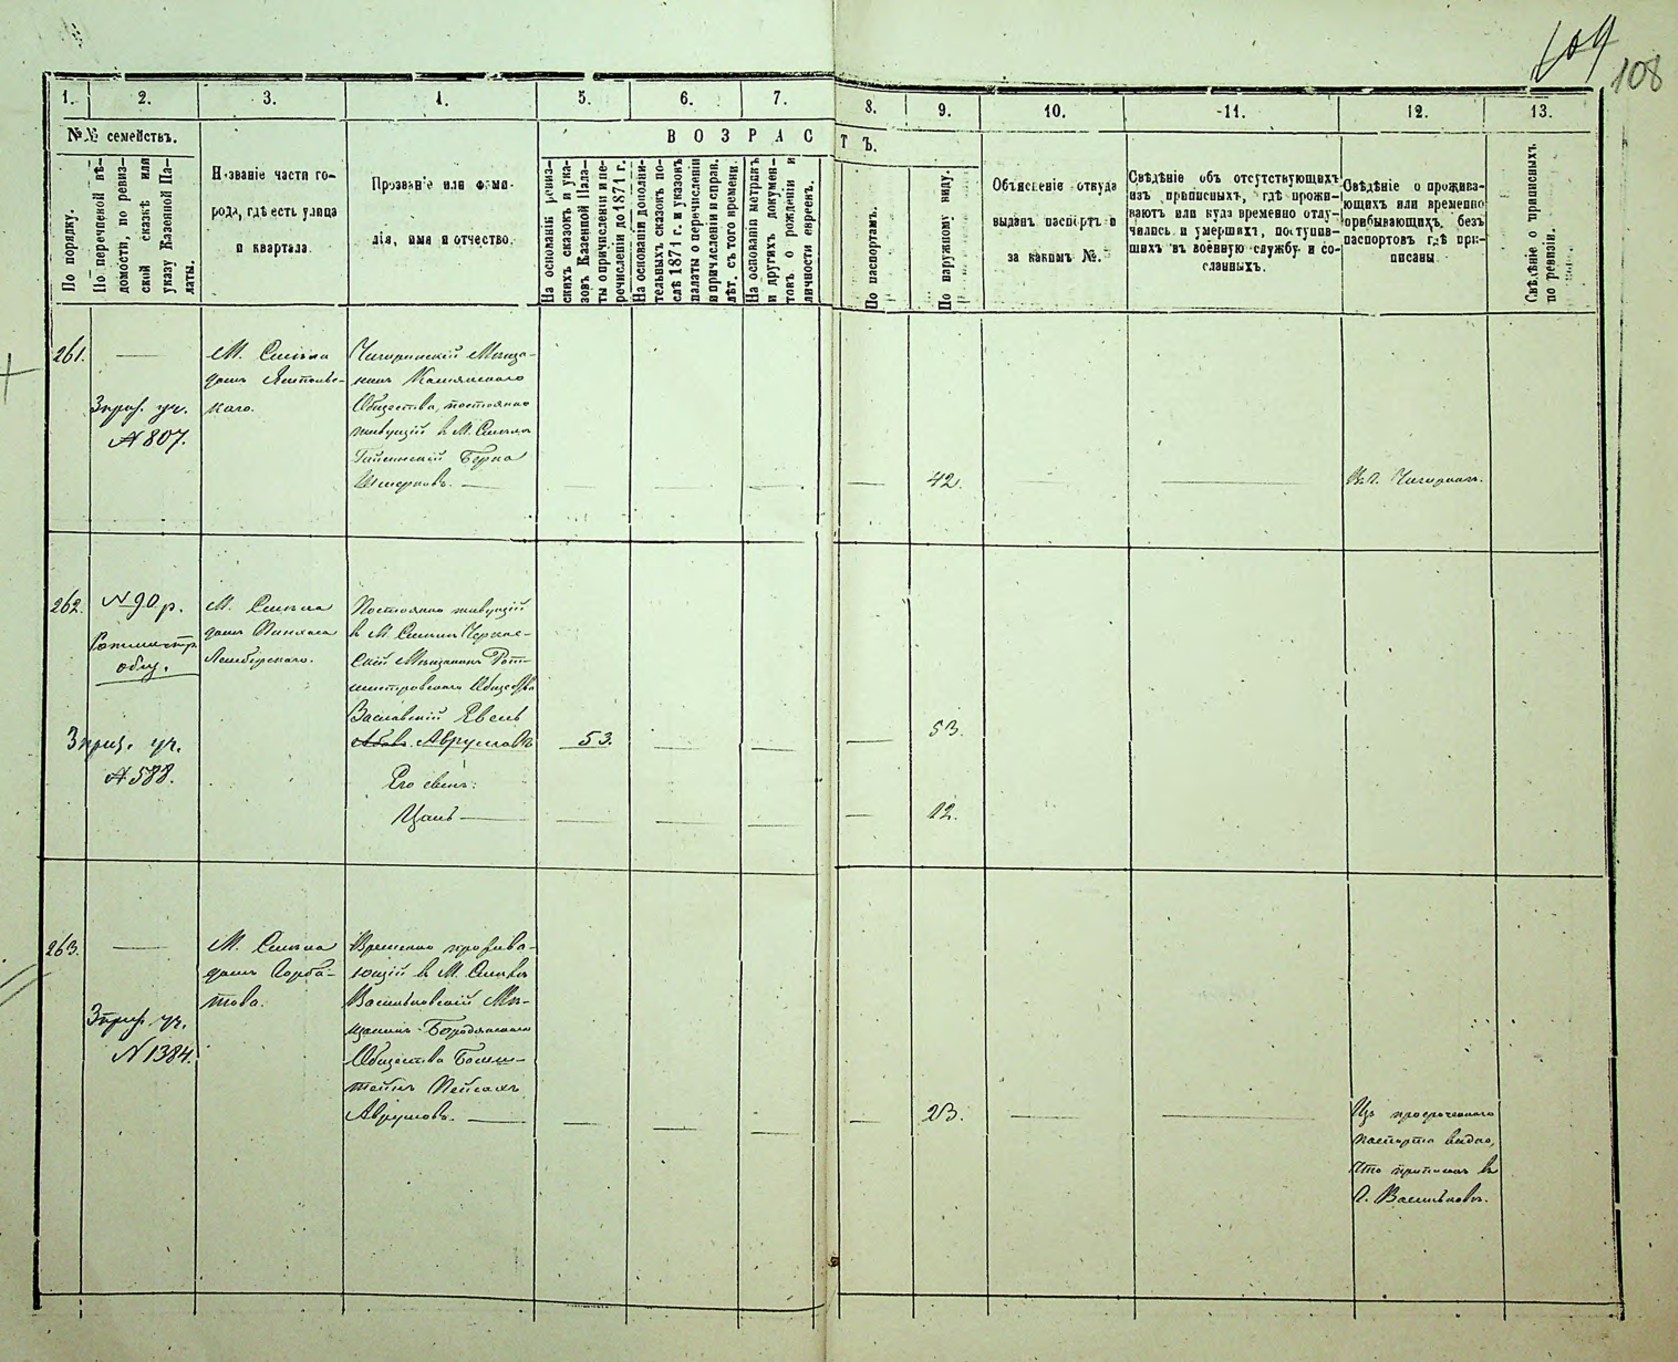 109
108
1.
2.
3.
4.
5.
6.
7.
8.
9.
10.
11.
12.
13.
№№ семействъ.
ВОЗРАСТЪ.
По порядку.
По перечневой вѣ-
домости, по ревиз-
ской сказкѣ или
указу Казенной Па-
латы.
Названіе части го-
рода, гдѣ есть улица
и квартала.
Прозваніе или фами-
лія, имя и отчество.
На основаніи ревиз-
скихъ сказокъ и ука-
зовъ Казенной Пала-
ты о причисленіи и пе-
речисленіи до 1871 г.
На основаніи дополни-
тельныхъ сказокъ по-
слѣ 1871 г. и указовъ
палаты о перечисленіи
и причисленіи и справ.
лѣт. съ того времени.
На основаніи метрикъ
и другихъ докумен-
товъ о рожденіи и
личности евреевъ.
По паспортамъ.
По наружному виду.
Объясненіе откуда
выданъ паспортъ и
за какимъ №.
Свѣдѣніе объ отсутствующихъ
изъ приписныхъ, гдѣ прожи-
ваютъ или куда временно отлу-
чились и умершихъ, поступив-
шихъ въ военную службу и со-
сланныхъ.
Свѣдѣніе о прожива-
ющихъ или временно
прибывающихъ, безъ
паспортовъ гдѣ при-
писаны
Свѣдѣніе о приписныхъ
по ревизіи.
261.
3 приз. уч.
№ 807.
М. Смѣла
домъ
Чигиринскій Мѣща-
нинъ
Общества, постоянно
живущій в М. Смѣла
Берко
42.
В г. Чигиринъ.
262.
№ 90 р.
Ротмистр.
общ.
3 приз. уч.
№ 588.
М. Смѣла
домъ Пинхаса
Постоянно живущій
в М. Смѣлѣ Черкас-
скій Мѣщанинъ Рот-
мистровскаго Общества
Заславскій
Аврумовъ
53.
53.
Его сынъ:
12.
263.
3 приз. уч.
№ 1384.
М. Смѣла
домъ Горба-
това.
Временно прожива-
ющій в М. Смѣлѣ
Васильковскій Мѣ-
щанинъ Бородянскаго
Общества
Пейсахъ
Аврумовъ.
23.
Изъ просроченнаго
паспорта видно,
что приписанъ въ
г. Васильковъ.